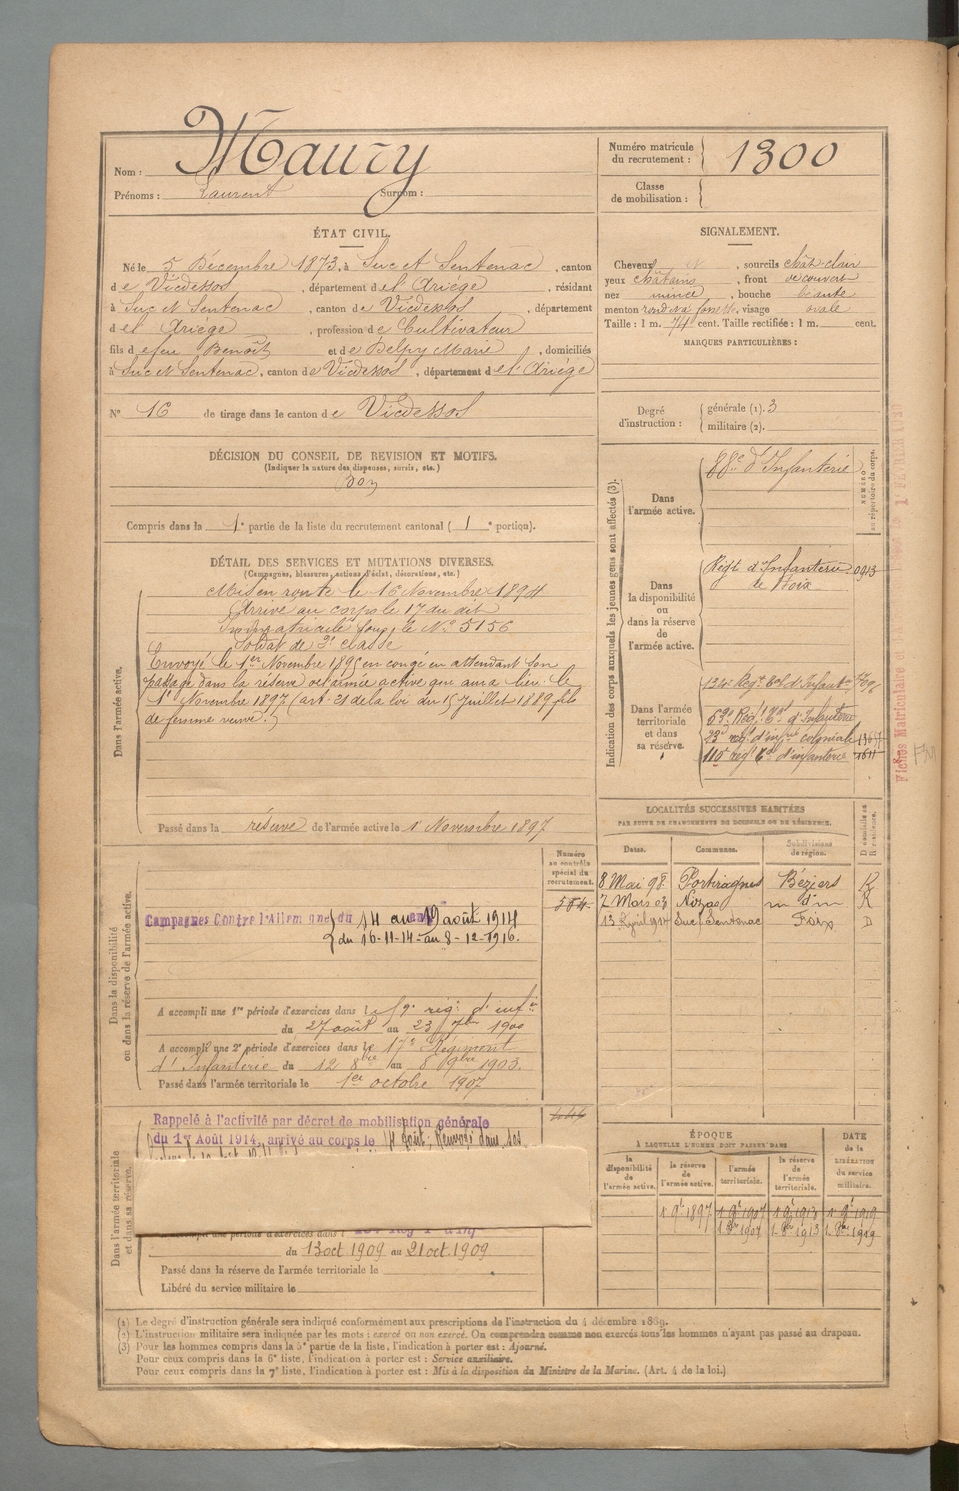 Nom : Maury
Prénoms : Laurent Surnom :
Numéro matricule du recrutement : 1300
Classe de mobilisation :
ÉTAT CIVIL.
Né le 5 Décembre 1873, à Suc et Sentenac, canton
de Vicdessos, département de l'Ariège, résidant
à Suc et Sentenac, canton de Vicdessos, département
de l'Ariège, profession de Cultivateur
fils de feu Benoît et de Delpy Marie, domiciliés
à Suc et Sentenac, canton de Vicdessos, département de l'Ariège
N° 16 de tirage dans le canton de Vicdessos
SIGNALEMENT.
Cheveux , sourcils chât-clair
yeux châtains, front découvert
nez mince, bouche béante
menton rond , visage ovale
Taille : 1 m. 74 cent. Taille rectifiée : 1 m. cent.
MARQUES PARTICULIÈRES :
Degré d'instruction : générale (1). 3
militaire (2).
DÉCISION DU CONSEIL DE REVISION ET MOTIFS.
(Indiquer la nature des dispenses, sursis, etc.)
Bon
Compris dans la 1e partie de la liste du recrutement cantonal (1e portion).
DÉTAIL DES SERVICES ET MUTATIONS DIVERSES.
(Campagnes, blessures, actions d'éclat, décorations, etc.)
Dans l'armée active.
Mis en route le 16 Novembre 1894
Arrivé au corps le 17 du dit
Immatriculé sous le N° 5156
Soldat de 2e classe
Envoyé le 1er Novembre 1895 en congé en attendant son
passage dans la réserve de l'armée active qui aura lieu le
1er Novembre 1897 (art. 21 de la loi du 15 juillet 1889 fils
de femme veuve.)
Passé dans la réserve de l'armée active le 1er Novembre 1897
Indication des corps auxquels les jeunes gens sont affectés (3).
NUMÉRO au répertoire du corps.
Dans l'armée active.
88e d'Infanterie
Dans la disponibilité ou dans la réserve de l'armée active.
Régt d'Infanterie de Foix 0913
Dans l'armée territoriale et dans sa réserve.
134e Régt Tal d'Infanterie
53e Régt Tal d'Infanterie
23e régt d'infie coloniale
110e régt Tal d'infanterie 1611
Dans la disponibilité ou dans la réserve de l'armée active.
Numéro au contrôle spécial du recrutement.
584
Campagnes Contre l'Allemagne du 14 au 19 août 1914
du 16-11-14 au 8-12-1916.
A accompli une 1re période d'exercices dans le 59e rég. d'infie
du 27 août au 23 7bre 1900
A accompli une 2e période d'exercices dans le 17e Régiment
d'Infanterie du 12 8bre au 8 9bre 1903.
Passé dans l'armée territoriale le 1er octobre 1907
LOCALITÉS SUCCESSIVES HABITÉES
PAR SUITE DE CHANGEMENTS DE DOMICILE OU DE RÉSIDENCE.
Dates. Communes. Subdivisions de région. D domicile ou R résidence.
8 Mai 98 Portiragnes Béziers R
7 Mars 03 Nizas R
13 Avril 1914 Suc Sentenac Foix D
Dans l'armée territoriale et dans sa réserve.
Rappelé à l'activité par décret de mobilisation générale
du 1er Août 1914, arrivé au corps le 14 Août; Renvoyé dans ses
du 13 oct 1909 au 21 oct. 1909
Passé dans la réserve de l'armée territoriale le
Libéré du service militaire le
ÉPOQUE
À LAQUELLE L'HOMME DOIT PASSER DANS
DATE de la LIBÉRATION du service militaire.
la disponibilité de l'armée active. la réserve de l'armée active. l'armée territoriale. la réserve de l'armée territoriale.
1 9bre 1897 1 9bre 1907 1 9bre 1913 1 9bre 1919
1 8bre 1907 1 8bre 1913 1 8bre 1919
(1) Le degré d'instruction générale sera indiqué conformément aux prescriptions de l'instruction du 4 décembre 1889.
(2) L'instruction militaire sera indiquée par les mots : exercé ou non exercé. On comprendra comme non exercés tous les hommes n'ayant pas passé au drapeau.
(3) Pour les hommes compris dans la 5e partie de la liste, l'indication à porter est : Ajourné.
Pour ceux compris dans la 6e liste, l'indication à porter est : Service auxiliaire.
Pour ceux compris dans la 7e liste, l'indication à porter est : Mis à la disposition du Ministre de la Marine. (Art. 4 de la loi.)